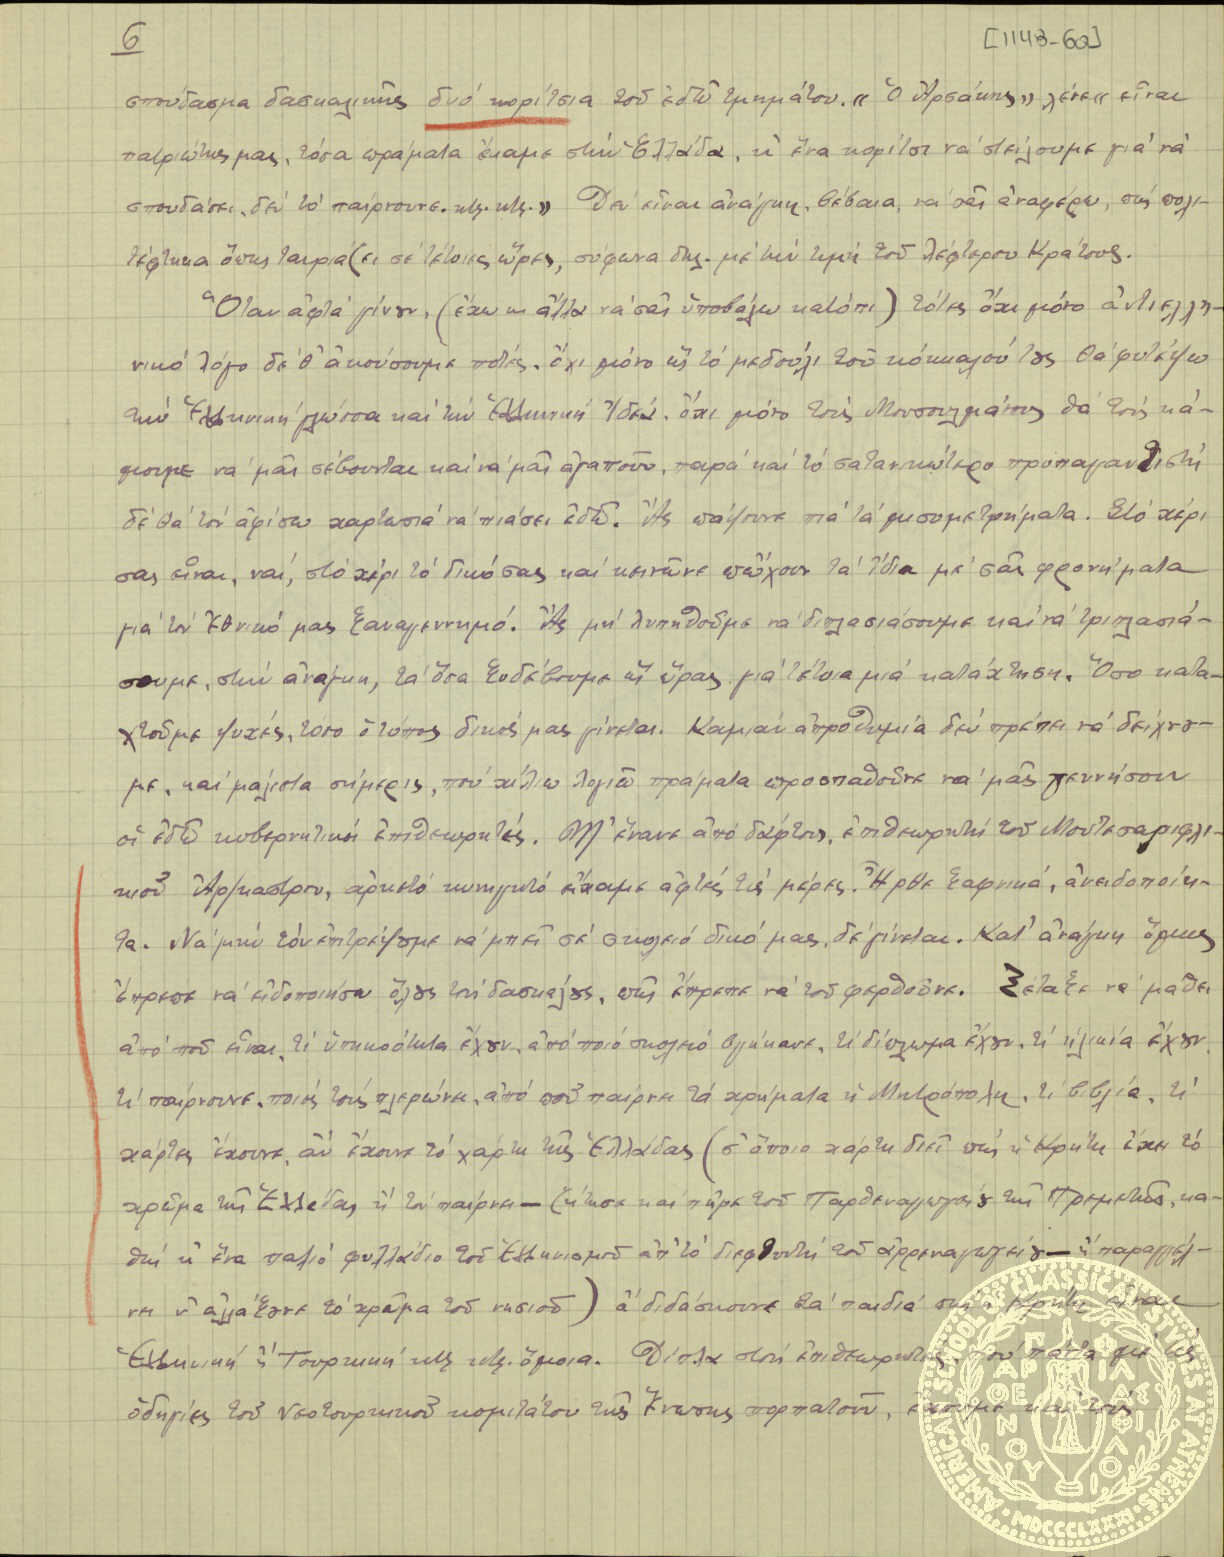 6 [1143-6α]
σπούδασμα δασκαλικῆς δυό κορίτσια τοῦ ἐδῶ τμημάτου. « Ὁ Ἀρσάκης » λένε « εἶναι
πατριώτης μας, τόσα πράματα ἔκαμε στήν Ἑλλάδα, κ' ἕνα κορίτσι νά στείλουμε γιά νά
σπουδάσει, δέν τό παίρνουνε. κτλ. κτλ. » Δέν εἶναι ἀνάγκη, βέβαια, νά σᾶς ἀναφέρω, πώς πολι-
τέφτηκα ὅπως ταιριάζει σέ τέτοιες ὥρες, σύφωνα δηλ. μέ τήν τιμή τοῦ λέφτερου Κράτους.
Ὅταν ἀφτά γίνουν, (ἔχω κι ἄλλα νά σᾶς ὑποβάλω κατόπι) τότες ὄχι μόνο ἀντιελλη-
νικό λόγο δέ θ' ἀκούσουμε ποτές, ὄχι μόνο ὥς τό μεδούλι τοῦ κόκκαλού τους θά φυτέψω
τήν Ἑλληνική γλώσσα καί τήν Ἑλληνική Ἰδέα, ὄχι μόνο τούς Μουσουλμάνους θά τούς κά-
μουμε νά μᾶς σέβουνται καί νά μᾶς ἀγαποῦν, παρά καί τό σατανικώτερο προπαγανδιστή
δέ θά τόν ἀφίσω χαρτωσιά νά πιάσει ἐδῶ. Ἄς πάψουνε πιά τά μισομετρήματα. Στό χέρι
σας εἶναι, ναί, στό χέρι τό δικό σας καί κεινῶνε πὤχουν τά ἴδια μέ σᾶς φρονήματα
γιά τόν Ἐθνικό μας ξαναγεννημό. Ἄς μή λυπηθοῦμε νά διπλασιάσουμε καί νά τριπλασιά-
σουμε, στήν ἀνάγκη, τά ὅσα ξοδέβουμε ὥς ὥρας γιά τέτοια μιά κατάχτηση. Ὅσο κατα-
χτοῦμε ψυχές, τόσο ὁ τόπος δικός μας γίνεται. Καμιάν ἀπροθυμία δέν πρέπει νά δείχνου-
με, καί μάλιστα σήμερις, πού χίλιω λογιῶ πράματα προσπαθοῦνε νά μᾶς γεννήσουν
οἱ ἐδῶ κυβερνητικοί ἐπιθεωρητές. Μ' ἕνανε ἀπό δάφτους, ἐπιθεωρητή τοῦ Μουτεσαριφλι-
κιοῦ Ἀργκάστρου, ἀρκετό κυνηγητό εἴχαμε ἀφτές τίς μέρες. Ἦρθε ξαφνικά, ἀνειδοποίη-
τα. Νά μήν τόν ἐπιτρέψουμε νά μπεῖ σέ σκολειό δικό μας, δέ γίνεται. Κατ' ἀνάγκη ὅμως
ἔπρεπε νά εἰδοποιήσω ὅλους τούς δασκάλους, πῶς ἔπρεπε νά τοῦ φερθοῦνε. Ξέταξε νά μάθει
ἀπό ποῦ εἶναι, τί ὑπηκοότητα ἔχουν, ἀπό ποιό σκολειό βγήκανε, τί δίπλωμα ἔχουν, τί ἡλικία ἔχουν,
τί παίρνουνε, ποιός τούς πλερώνει, ἀπό ποῦ παίρνει τά χρήματα ἡ Μητρόπολη, τί βιβλία, τί
χάρτες ἔχουνε, ἄν ἔχουνε τό χάρτη τῆς Ἑλλάδας (σ' ὅποιο χάρτη δεῖ πώς ἡ Κρήτη ἔχει τό
χρῶμα τῆς Ἑλλάδας ἤ τόν παίρνει — ζήτησε καί πῆρε τοῦ Παρθεναγωγείου τῆς Πρεμετῆς, κα-
θώς κ' ἕνα παλιό φυλλάδιο τοῦ Ἑλληνισμοῦ ἀπ' τό διεφθυντή τοῦ ἀρρεναγωγείου — ἤ παραγγέλ-
νει ν' ἀλλάξουνε τό χρῶμα τοῦ νησιοῦ) ἄ διδάσκουνε τά παιδιά πώς ἡ Κρήτη εἶναι
Ἑλληνική ἤ Τουρκική κτλ κτλ. ὅμοια. Δίπλα στούς ἐπιθεωρητές, πού πάντα μέ τίς
ὁδηγίες τοῦ νεοτουρκικοῦ κομιτάτου τῆς Ἕνωσης πορπατοῦν, ἔχουμε καί τούς
AMERICAN SCHOOL OF CLASSICAL STUDIES AT ATHENS
MDCCCLXXXI
ΠΑΡΘΕΝΟΥ ΦΙΛΑΣ ΦΙΛΟΙ